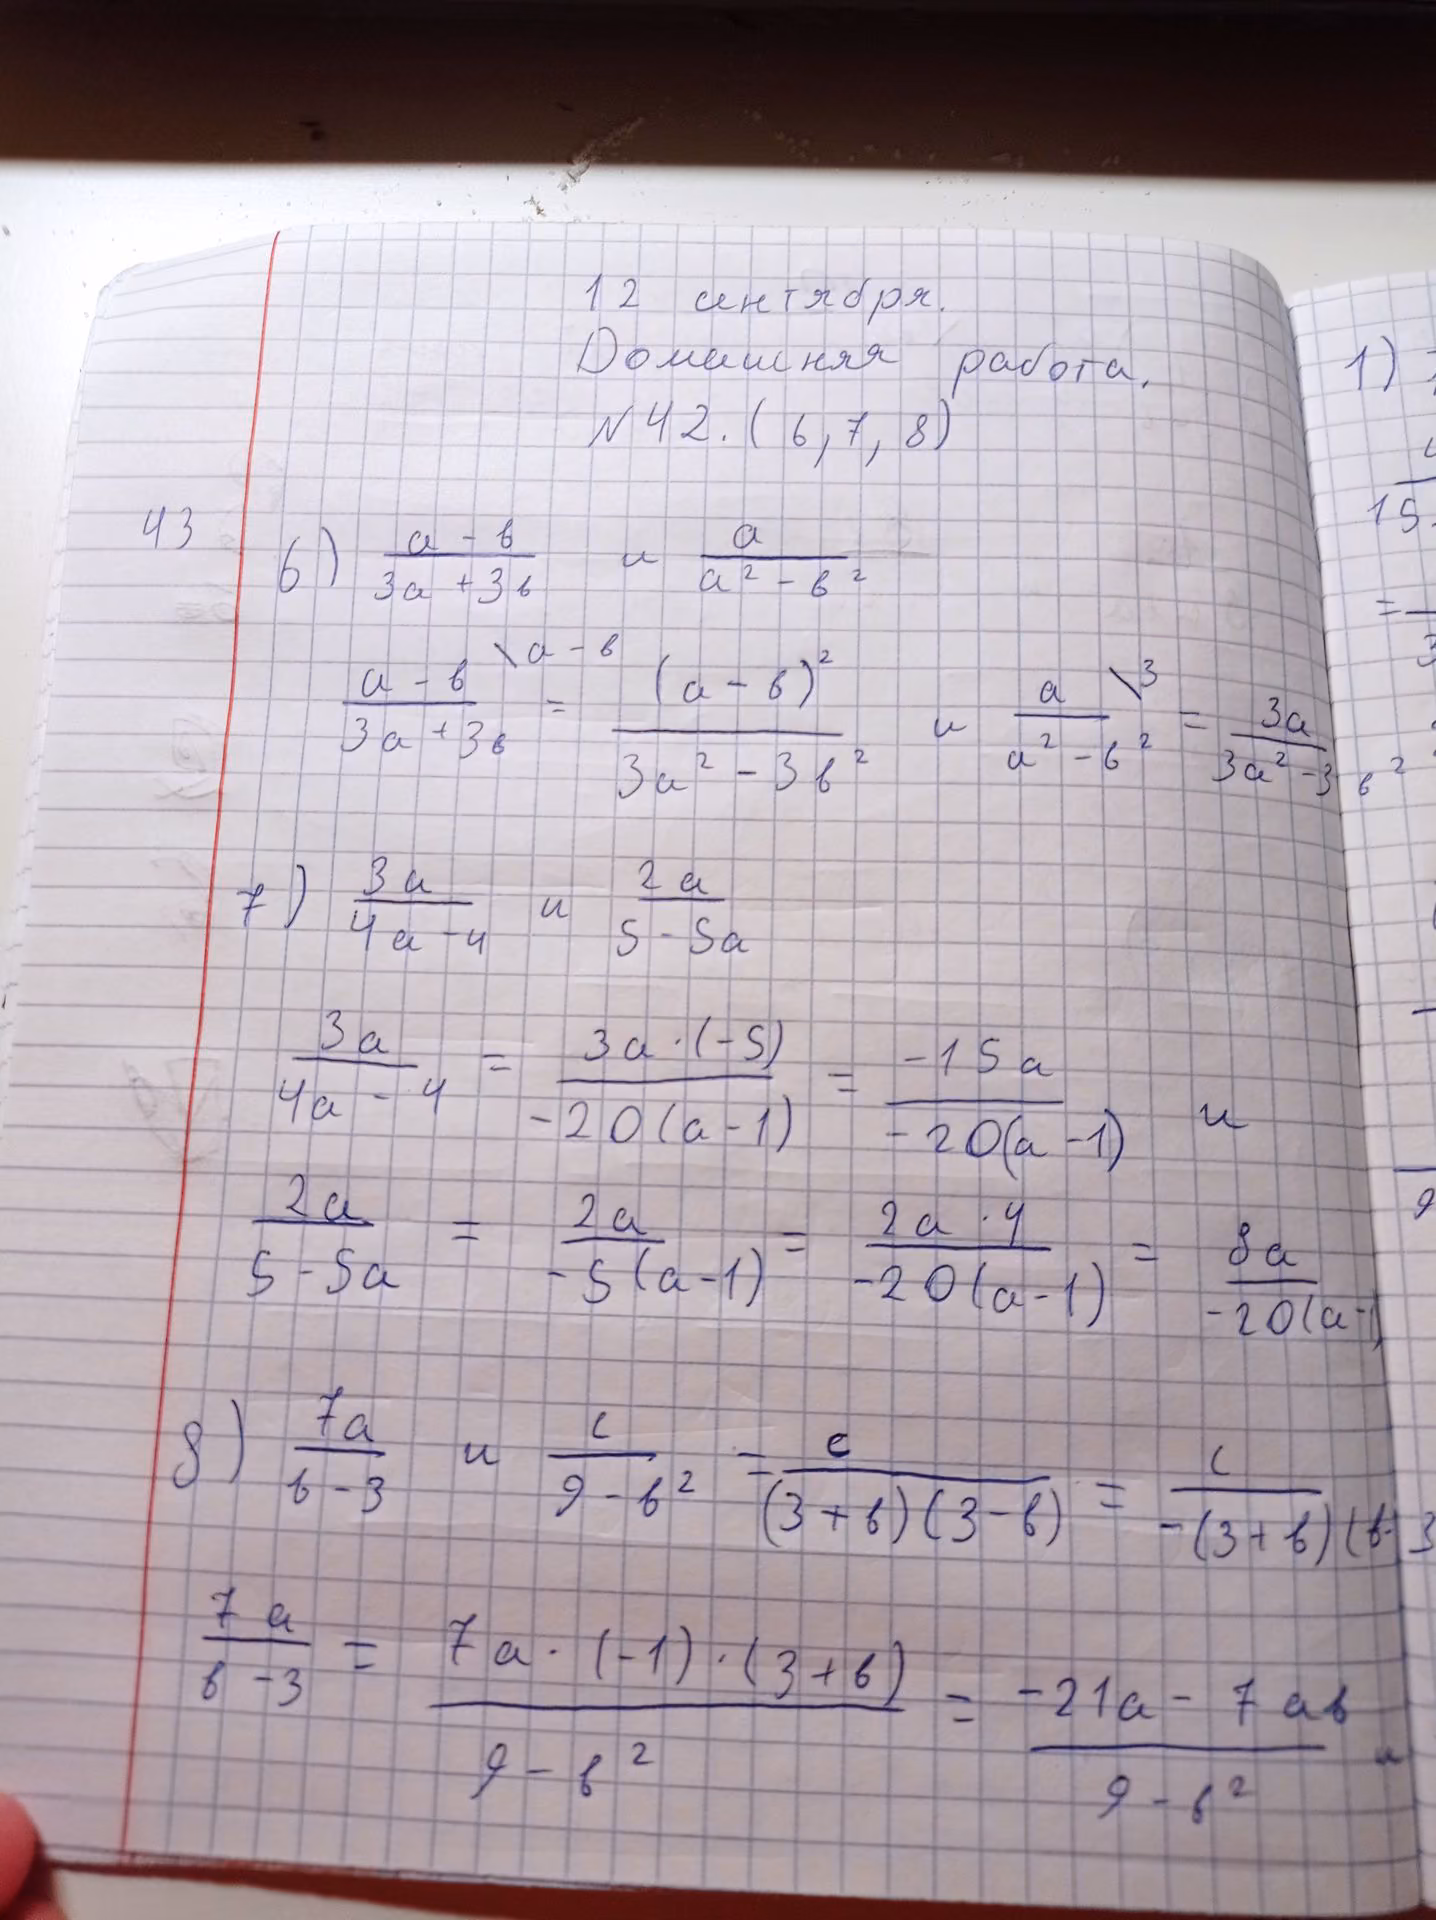 12 сентября.
Домашняя работа.
N42. (6, 7, 8)
43
6) (a - b)/(3a + 3b) и a/(a² - b²)
(a - b)/(3a + 3b) \a - b = (a - b)²/(3a² - 3b²) и a/(a² - b²) \3 = 3a/(3a² - 3b²)
7) 3a/(4a - 4) и 2a/(5 - 5a)
3a/(4a - 4) = 3a · (-5)/(-20(a - 1)) = -15a/(-20(a - 1)) и
2a/(5 - 5a) = 2a/(-5(a - 1)) = 2a · 4/(-20(a - 1)) = 8a/(-20(a - 1
8) 7a/(b - 3) и c/(9 - b²) = c/((3 + b)(3 - b)) = c/(-(3 + b)(b - 3
7a/(b - 3) = 7a · (-1) · (3 + b)/(9 - b²) = (-21a - 7ab)/(9 - b²) и
1)
15
=
3
9